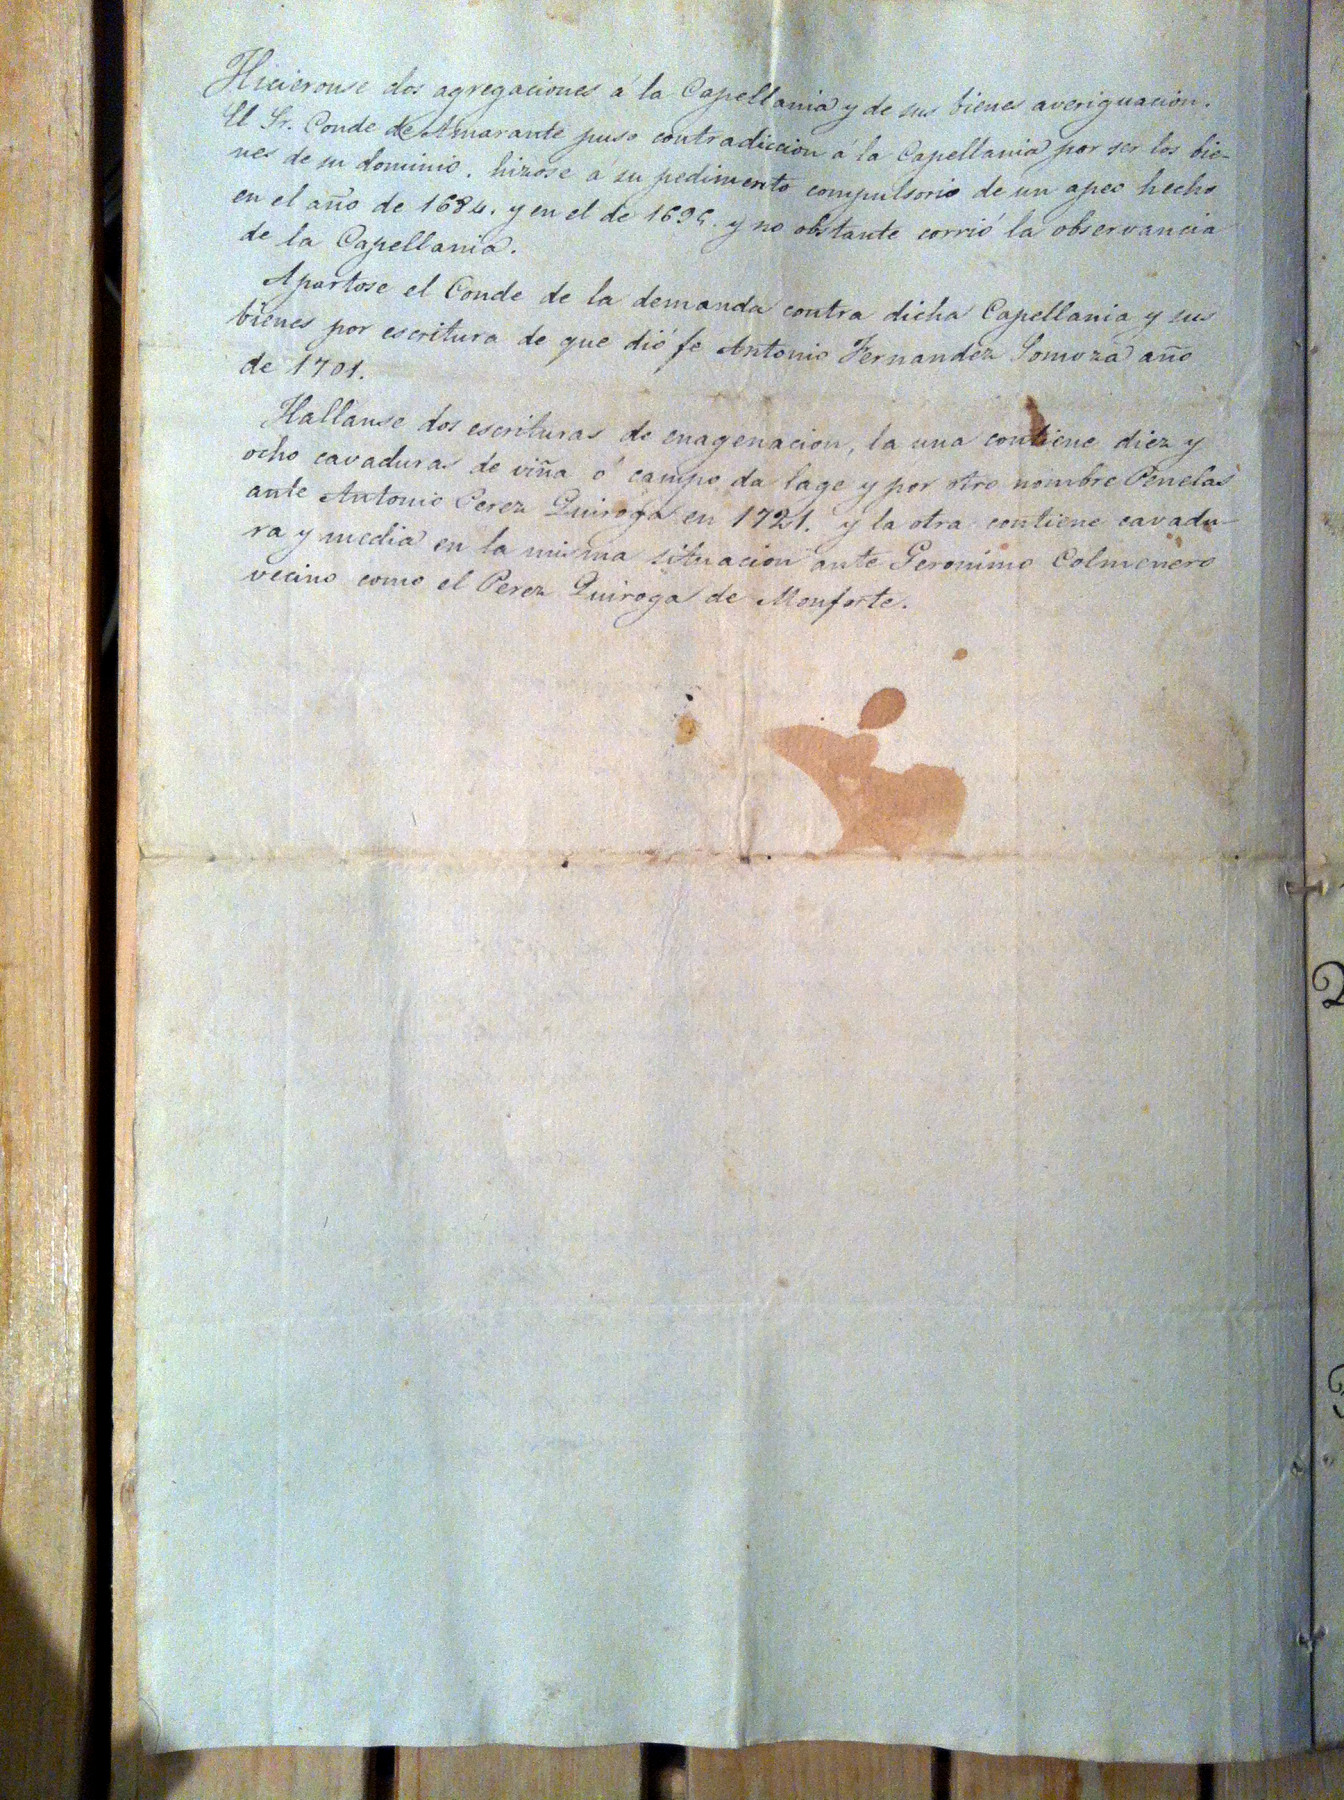 Hicieronse dos agregaciones á la Capellania y de sus bienes averiguacion.
El Sr. Conde de Amarante puso contradiccion á la Capellania por ser los bie-
nes de su dominio. hizose á su pedimento compulsorio de un apeo hecho
en el año de 1684. y en el de 1695. y no obstante corrió la observancia
de la Capellania.
Apartose el Conde de la demanda contra dicha Capellania y sus
bienes por escritura de que dió fe Antonio Fernandez Somoza año
de 1701.
Hallanse dos escrituras de enagenacion, la una contiene diez y
ocho cavaduras de viña ó campo da lage y por otro nombre Penelas
ante Antonio Perez Quiroga en 1721. y la otra contiene cavadu-
ra y media en la misma situacion ante Geronimo Colmenero
vecino como el Perez Quiroga de Monforte.